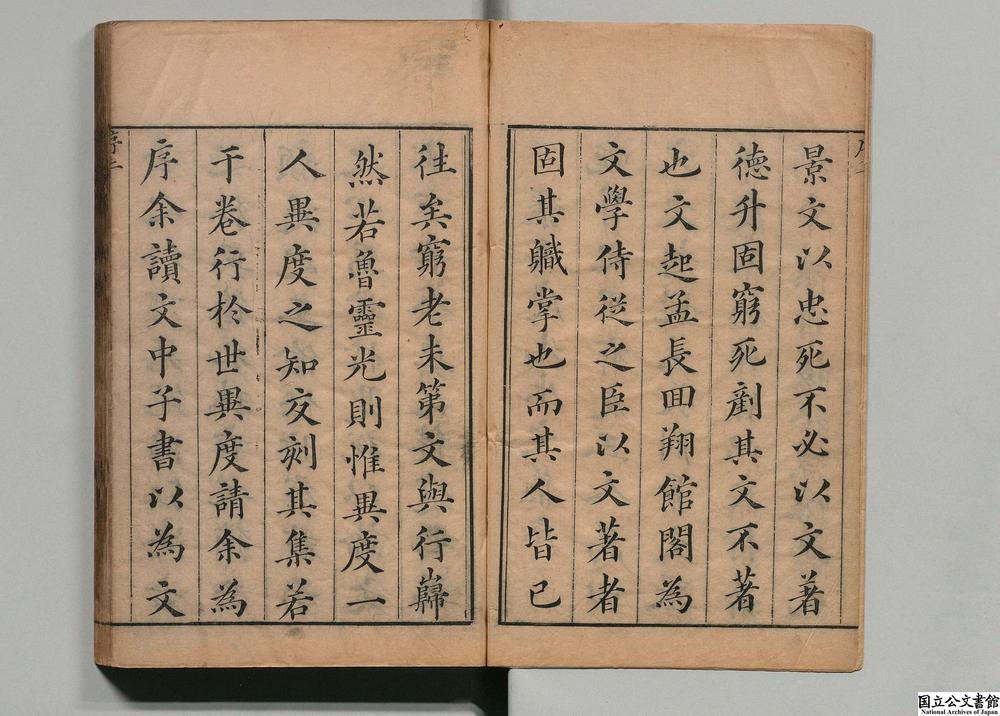 景文以忠死不必以文著
德升固窮死剷其文不著
也文起孟長回翔館閣為
文學侍從之臣以文著者
固其職掌也而其人皆已
往矣窮老未第文與行巋
然若魯靈光則惟異度一
人異度之知交刻其集若
干卷行於世異度請余為
序余讀文中子書以為文
序二
国立公文書館
National Archives of Japan